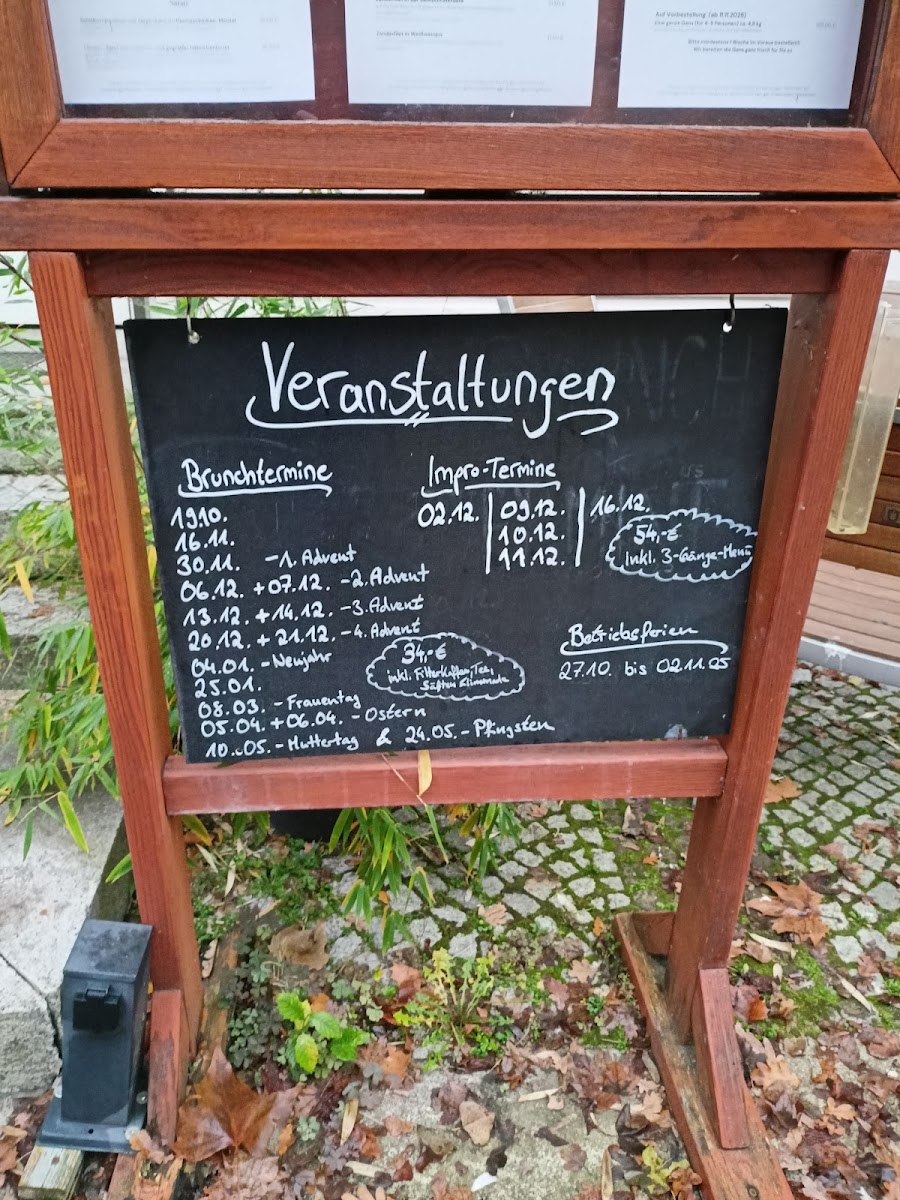 Zanderfilet in Weißweinjus
Auf Vorbestellung: (ab 11.11.2025)
Veranstaltungen
Brunchtermine
19.10.
16.11.
30.11. - 1. Advent
06.12. + 07.12. - 2. Advent
13.12. + 14.12. - 3. Advent
20.12. + 21.12. - 4. Advent
04.01. - Neujahr
25.01.
08.03. - Frauentag
05.04. + 06.04. - Ostern
10.05. - Muttertag & 24.05. - Pfingsten
34,-€
inkl. Filterkaffee, Tee,
Säften & Limonade
Impro-Termine
02.12. 09.12. 16.12.
10.12.
11.12.
54,-€
inkl. 3-Gänge-Menü
Betriebsferien
27.10. bis 02.11.05